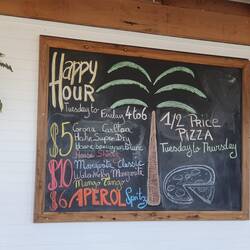 Happy
Hour
Tuesday to Friday 4 to 6
$5
Corona
Hahn Super Dry
House Sauvignon Blanc
House
$10
Margarita Classic
Margarita
Mango
$6 APEROL Spritz
1/2 PRICE
PIZZA
Tuesday to Thursday